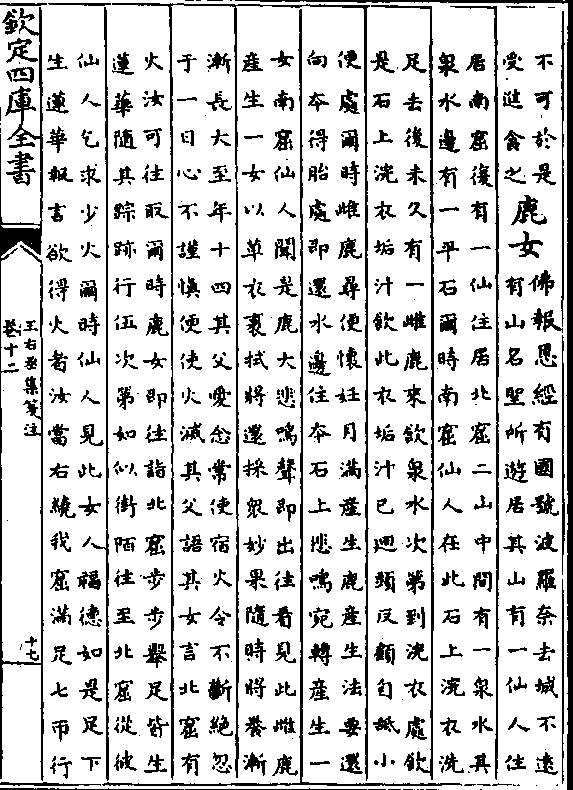 不可於是
受禽之
鹿女
佛報恩經有國號波羅奈去城不遠
有山名聖所遊居其山有一仙人住
居南窟復有一仙住居北窟二山中間有一泉水其
泉水邊有一平石爾時南窟仙人在此石上浣衣洗
足去後未久有一雌鹿來飲泉水次第到浣衣處飲
是石上浣衣垢汁飲此衣垢汁已迴頭反顧自舐小
便處爾時雌鹿尋便懷妊月滿産生鹿産生法要還
向本得胎處即還水邊住本石上悲鳴宛轉産生一
女南窟仙人聞是鹿大悲鳴聲即出往看見此雌鹿
産生一女以草衣裹拭將還採衆妙果隨時將養漸
漸長大至年十四其父愛念常使宿火令不斷絶忽
于一日心不謹慎便使火滅其父語其女言北窟有
火汝可往取爾時鹿女即往詣北窟步步舉足皆生
蓮華隨其踪跡行伍次第如似街陌往至北窟從彼
仙人乞求少火爾時仙人見此女人福德如是足下
生蓮華報言欲得火者汝當右繞我窟滿足七帀行
欽定四庫全書
王右丞集箋注
卷十二
十七